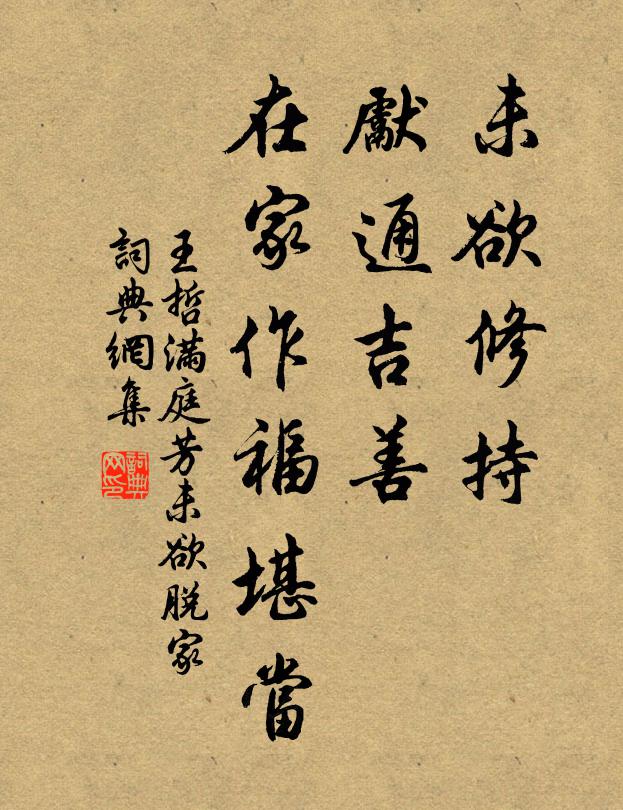 未欲修持
獻通吉善
在家作福堪當
王哲满庭芳未欲脫家
詞典網集
詞典网印